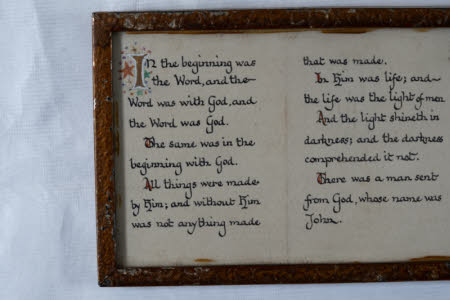 In the beginning was
the Word, and the
Word was with God, and
the Word was God.
The same was in the
beginning with God.
All things were made
by Him; and without Him
was not anything made
that was made.
In Him was life; and
the life was the light of men
And the light shineth in
darkness; and the darkness
comprehended it not.
There was a man sent
from God, whose name was
John.